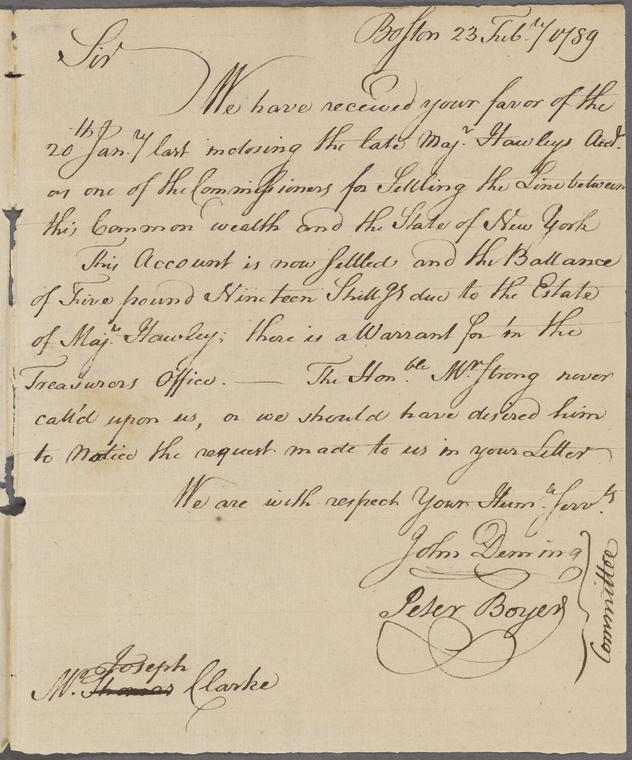 Boston 23 Feb.ry 1789
Sir
We have received your favor of the
20th Jan.ry last inclosing the late Maj.r Hawleys Acct.
as one of the Commissioners for Settling the Line between
this Common wealth and the State of New York
This Account is now settled and the Ballance
of Five pound Nineteen Shillgs due to the Estate
of Maj.r Hawley; there is a Warrant for in the
Treasurors Office. — The Hon.ble Mr Strong never
call'd upon us, or we should have desired him
to Notice the request made to us in your Letter
We are with respect Your Hum.e Serv.ts
John Deming
Peter Boyer
Committee
Joseph
Mr. Thomas Clarke